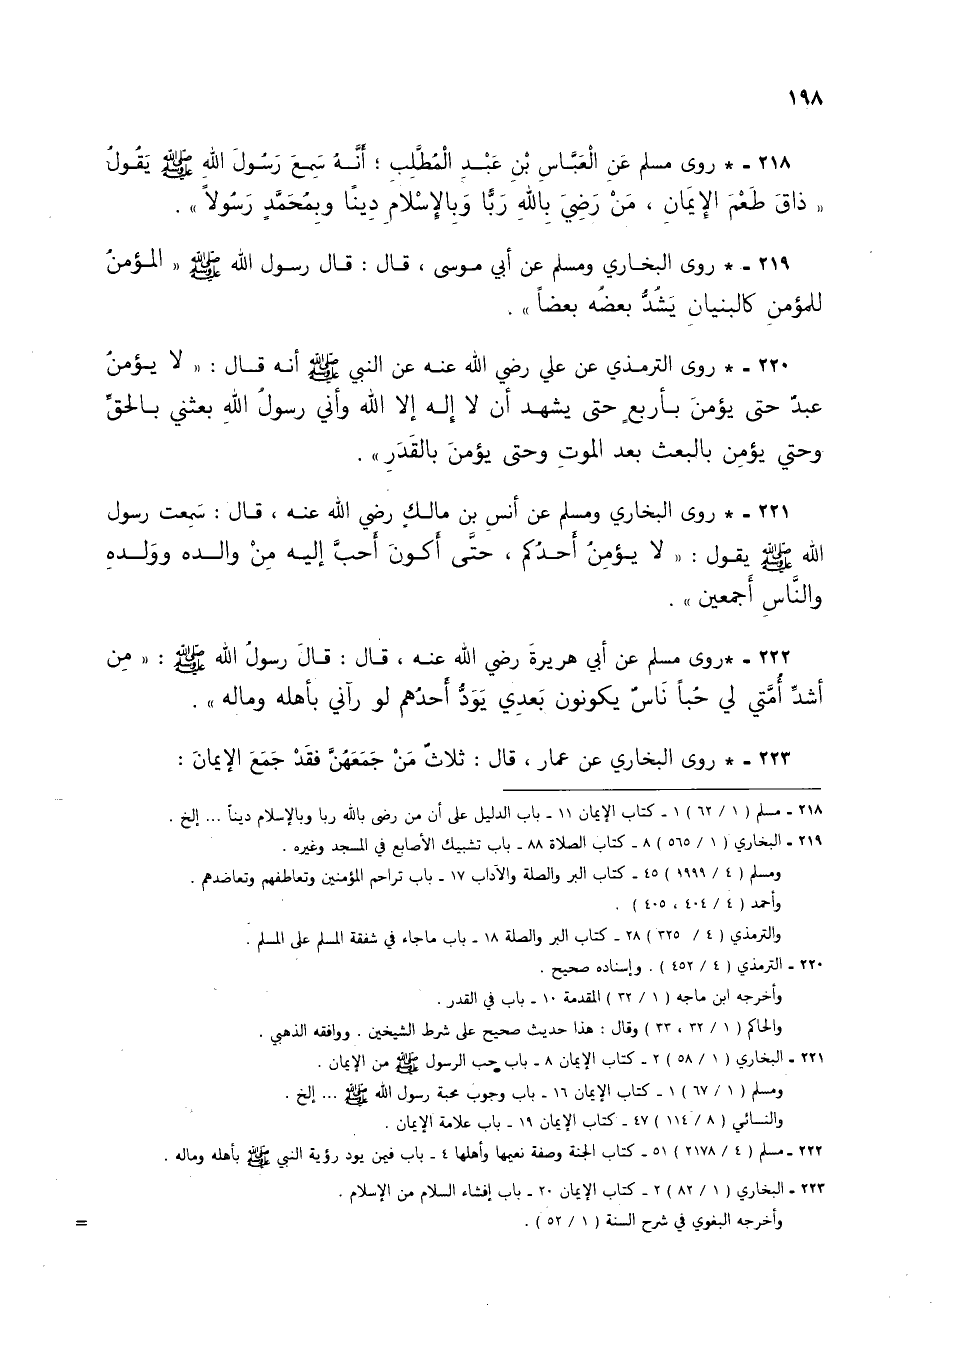 ١٩٨
٢١٨ - * روى مسلم عَنِ الْعَبَّاسِ بْنِ عَبْدِ الْمُطَّلِبِ ؛ أَنَّهُ سَمِعَ رَسُولَ اللهِ ﷺ يَقُولُ
« ذاقَ طَعْمَ الإِيمَانِ ، مَنْ رَضِيَ بِاللهِ رَبًّا وَبِالإِسْلَامِ دِينًا وبِمُحَمَّدٍ رَسُولاً » .
٢١٩ - * روى البخاري ومسلم عن أبي موسى ، قال : قال رسول الله ﷺ « المؤمنُ
للمؤمنِ كالبنيانِ يَشُدُّ بعضُه بعضاً » .
٢٢٠ - * روى الترمذي عن علي رضي الله عنه عن النبي ﷺ أنه قال : « لا يؤمنُ
عبدٌ حتى يؤمنَ بأربعٍ حتى يشهد أن لا إله إلا الله وأني رسولُ اللهِ بعثني بالحقِّ
وحتي يؤمِن بالبعث بعد الموتِ وحتى يؤمنَ بالقَدَرِ » .
٢٢١ - * روى البخاري ومسلم عن أنس بن مالكٍ رضي الله عنه ، قال : سَمِعت رسول
الله ﷺ يقول : « لا يؤمِنُ أَحدُكم ، حتَّى أَكونَ أَحبَّ إليه مِنْ والده ووَلده
والنَّاسِ أَجمعين » .
٢٢٢ - *روى مسلم عن أبي هريرةَ رضي الله عنه ، قال : قالَ رسولُ الله ﷺ : « مِن
أشدِّ أُمَّتي لي حُباً نَاسٌ يكونون بَعدِي يَوَدُّ أَحدُهم لو رآني بأهله وماله » .
٢٢٣ - * روى البخاري عن عمار ، قال : ثلاثٌ مَنْ جَمَعَهُنَّ فقَدْ جَمَعَ الإيمانَ :
٢١٨ - مسلم ( ١ / ٦٢ ) ١ - كتاب الإيمان ١١ - باب الدليل على أن من رضى بالله ربا وبالإسلام ديناً ... إلخ .
٢١٩ - البخاري ( ١ / ٥٦٥ ) ٨ - كتاب الصلاة ٨٨ - باب تشبيك الأصابع في المسجد وغيره .
ومسلم ( ٤ / ١٩٩٩ ) ٤٥ - كتاب البر والصلة والآداب ١٧ - باب تراحم المؤمنين وتعاطفهم وتعاضدهم .
وأحمد ( ٤ / ٤٠٤ ، ٤٠٥ ) .
والترمذي ( ٤ / ٣٢٥ ) ٢٨ - كتاب البر والصلة ١٨ - باب ماجاء في شفقة المسلم على المسلم .
٢٢٠ - الترمذي ( ٤ / ٤٥٢ ) . وإسناده صحيح .
وأخرجه ابن ماجه ( ١ / ٣٢ ) المقدمة ١٠ - باب في القدر .
والحاكم ( ١ / ٣٢ ، ٣٣ ) وقال : هذا حديث صحيح على شرط الشيخين . ووافقه الذهبي .
٢٢١ - البخاري ( ١ / ٥٨ ) ٢ - كتاب الإيمان ٨ - باب حب الرسول ﷺ من الإيمان .
ومسلم ( ١ / ٦٧ ) ١ - كتاب الإيمان ١٦ - باب وجوب محبة رسول الله ﷺ ... إلخ .
والنسائي ( ٨ / ١١٤ ) ٤٧ - كتاب الإيمان ١٩ - باب علامة الإيمان .
٢٢٢ - مسلم ( ٤ / ٢١٧٨ ) ٥١ - كتاب الجنة وصفة نعيمها وأهلها ٤ - باب فيمن يود رؤية النبي ﷺ بأهله وماله .
٢٢٣ - البخاري ( ١ / ٨٢ ) ٢ - كتاب الإيمان ٢٠ - باب إفشاء السلام من الإسلام .
وأخرجه البغوي في شرح السنة ( ١ / ٥٢ ) .
=